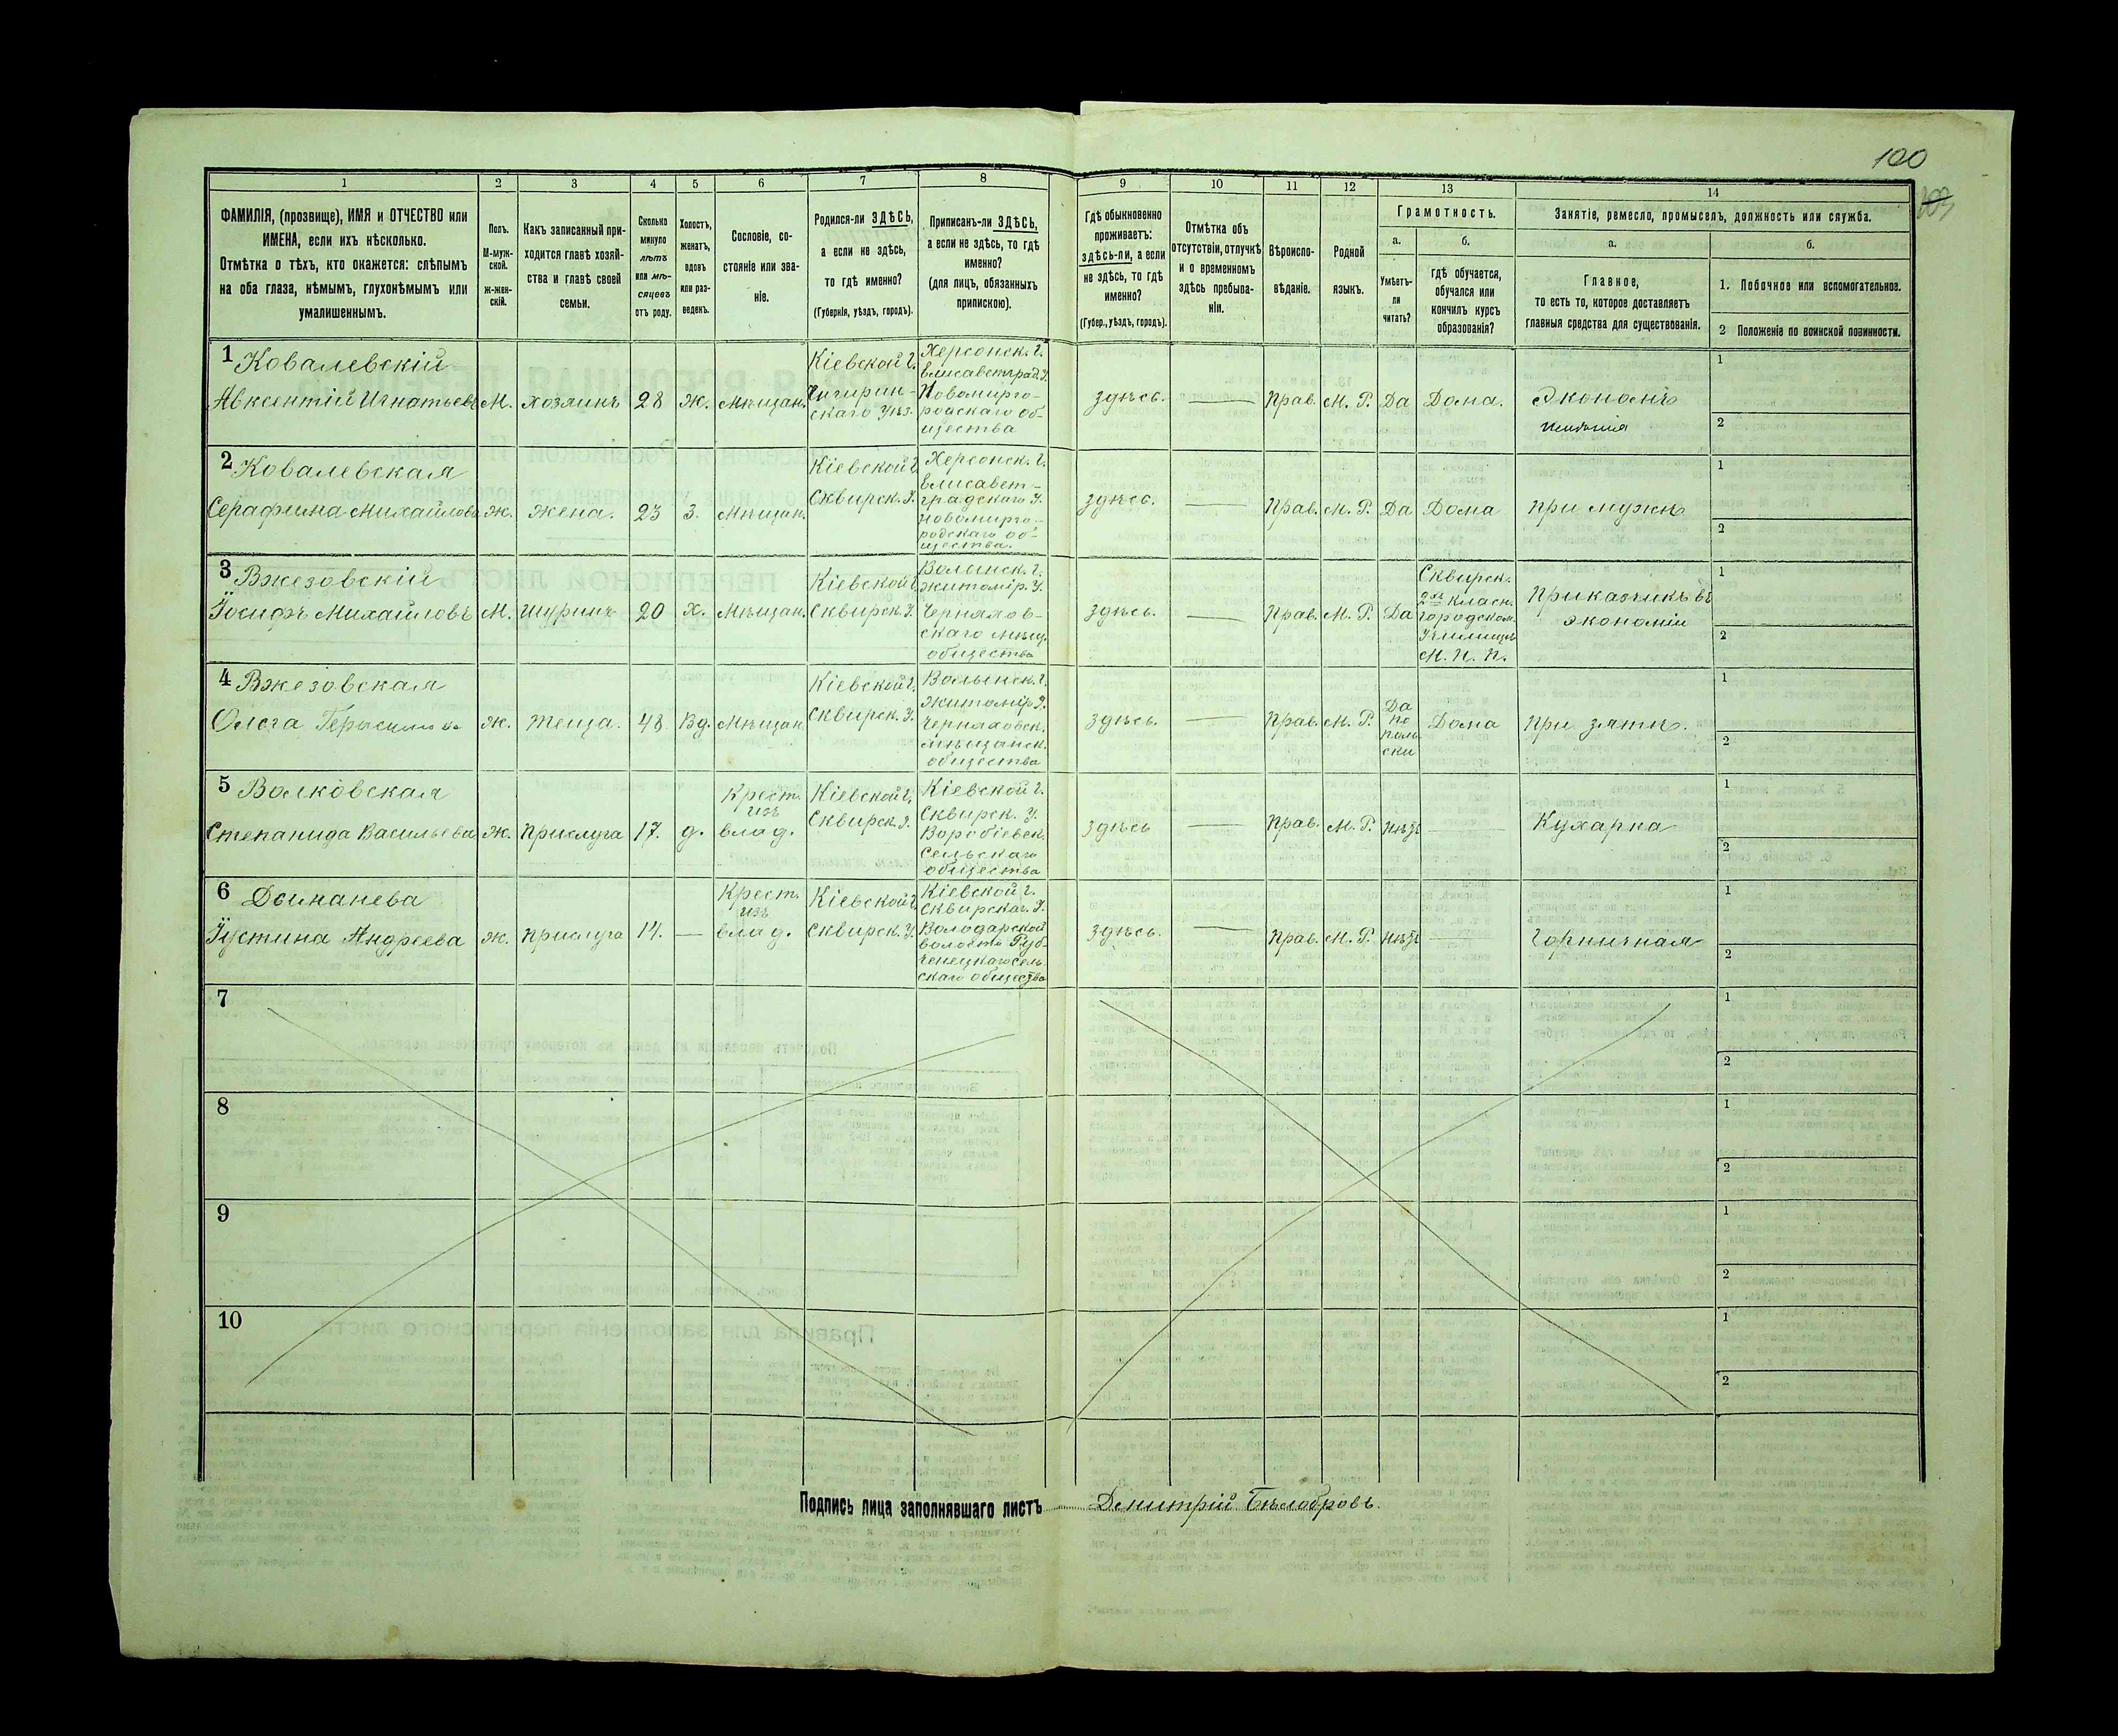 100
1 2 3 4 5 6 7 8 9 10 11 12 13 14
ФАМИЛІЯ, (прозвище), ИМЯ и ОТЧЕСТВО или
ИМЕНА, если ихъ нѣсколько.
Отмѣтка о тѣхъ, кто окажется: слѣпымъ
на оба глаза, нѣмымъ, глухонѣмымъ или
умалишеннымъ.
Полъ.
М-муж-
ской.
ж-жен-
скій.
Какъ записанный при-
ходится главѣ хозяй-
ства и главѣ своей
семьи.
Сколько
минуло
лѣтъ
или мѣ-
сяцевъ
отъ роду.
Холостъ,
женатъ,
вдовъ
или раз-
веденъ.
Сословіе, со-
стояніе или зва-
ніе.
Родился-ли ЗДѢСЬ,
а если не здѣсь,
то гдѣ именно?
(Губернія, уѣздъ, городъ).
Приписанъ-ли ЗДѢСЬ,
а если не здѣсь, то гдѣ
именно?
(для лицъ, обязанныхъ
припискою).
Гдѣ обыкновенно
проживаетъ:
здѣсь-ли, а если
не здѣсь, то гдѣ
именно?
(Губер., уѣздъ, городъ).
Отмѣтка объ
отсутствіи, отлучкѣ
и о временномъ
здѣсь пребыва-
ніи.
Вѣроиспо-
вѣданіе.
Родной
языкъ.
Грамотность.
а.
Умѣетъ-
ли
читать?
б.
гдѣ обучается,
обучался или
кончилъ курсъ
образованія?
Занятіе, ремесло, промыселъ, должность или служба.
а.
Главное,
то есть то, которое доставляетъ
главныя средства для существованія.
б.
1. Побочное или вспомогательное.
2 Положеніе по воинской повинности.
1 Ковалевскій
Авксентій Игнатьевъ
М.
хозяинъ
28
Ж.
Мѣщан.
Кіевской г.
Чигирин-
скаго уѣз.
Херсонск. г.
Елисаветград. у.
Новомирго-
родскаго об-
щества
здѣсь.
Прав.
М. Р.
Да
Дома.
Экономъ
имѣнія
1
2
2 Ковалевская
Серафима Михайлова
Ж.
жена.
23
З.
Мѣщан.
Кіевской г.
Сквирск. у.
Херсонск. г.
Елисавет-
градскаго у.
Новомирго-
родскаго об-
щества.
здѣсь.
Прав.
М. Р.
Да
Дома
при мужѣ
1
2
3 Вжезовскій
Іосифъ Михайловъ
М.
шуринъ
20
Х.
Мѣщан.
Кіевской г.
Сквирск. у.
Волынск. г.
Житомір. у.
Чернахов-
скаго мѣщ.
общества
здѣсь.
Прав.
М. Р.
Да
Сквирск.
2хъ класн.
городском.
Училищѣ
М. Н. П.
Приказчикъ въ
экономіи
1
2
4 Вжезовская
Ольга Герасимова
Ж.
теща.
48
Вд.
Мѣщан.
Кіевской г.
Сквирск. у.
Волынск. г.
Житомір. у.
Черняховск.
мѣщанск.
общества
здѣсь.
Прав.
М. Р.
Да
по
поль
ски
Дома
при зятѣ.
1
2
5 Волковская
Степанида Васильева
Ж.
прислуга
17.
д.
Крест.
изъ
влад.
Кіевской г.
Сквирск. у.
Кіевской г.
Сквирск. у.
Воробіевск.
сельскаго
общества
здѣсь
Прав.
М. Р.
Нѣтъ
Кухарка
1
2
6
Густина Андреева
Ж.
прислуга
14.
Крест.
изъ
влад.
Кіевской г.
Сквирск. у.
Кіевской г.
Сквирскаг. у.
Володарской
волости Руб-
ченецкаго сель
скаго общества
здѣсь.
Прав.
М. Р.
Нѣтъ
Горничная
1
2
7
1
2
8
1
2
9
1
2
10
1
2
Подпись лица заполнявшаго листъ Дмитрій Бѣлобровъ.